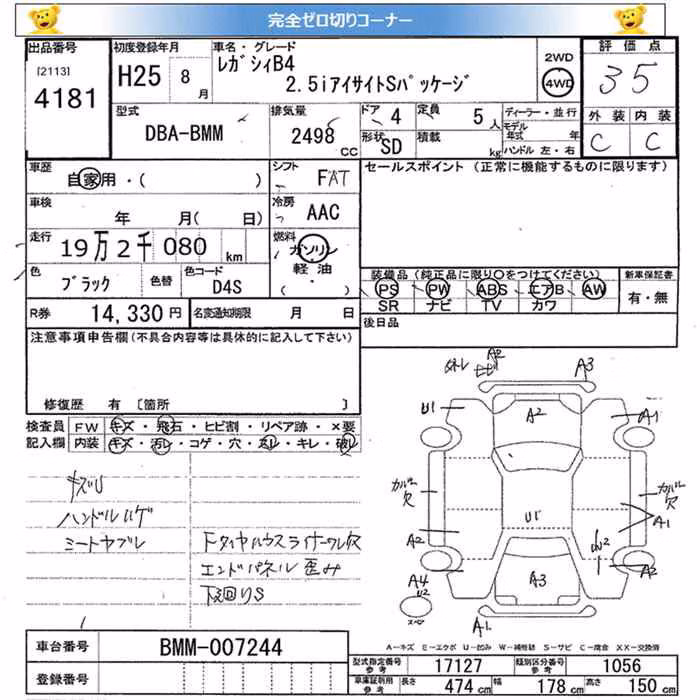 完全ゼロ切りコーナー
出品番号
[2113]
4181
初度登録年月
H25 8月
車名・グレード
レガシィB4
2.5iアイサイトSパッケージ
2WD
4WD
評価点
35
外装 内装
C C
型式
DBA-BMM
排気量
2498 CC
ドア 4
形状 SD
定員 5人
積載 kg
ディーラー・並行
モデル年式 年
ハンドル 左・右
車歴
自家用・( )
シフト
FAT
セールスポイント (正常に機能するものに限ります)
車検
年 月( 日)
冷房
AAC
走行
19万2千080 km
燃料
ガソリン
軽油
( ・ )
色
ブラック
色替
色コード
D4S
装備品 (純正品に限り○をつけてください)
PS PW ABS エアB AW
SR ナビ TV カワ
新車保証書
有・無
R券 14,330円
名変通知期限 月 日
後日品
注意事項申告欄 (不具合内容等は具体的に記入して下さい)
修復歴 有 [箇所 ]
検査員記入欄
FW キズ・飛石・ヒビ割・リペア跡・×要
内装 キズ・汚レ・コゲ・穴・スレ・キレ・破レ
キズU
ハンドルハゲ
シートヤブレ
Fタイヤハウスライナーワレ欠
エンドパネル歪み
下廻りS
A2
A3
U1
A2
A1
カバー欠
カバー欠
A1
U1
A2
UW2
A2
A4
U2
スペア
A3
A1
A−キズ E−エクボ U−凹み W−補修跡 S−サビ C−腐食 XX−交換済
車台番号 BMM-007244
登録番号
型式指定番号 参考 17127
類別区分番号 参考 1056
車庫証明用 参考 長さ 474cm 幅 178cm 高さ 150cm